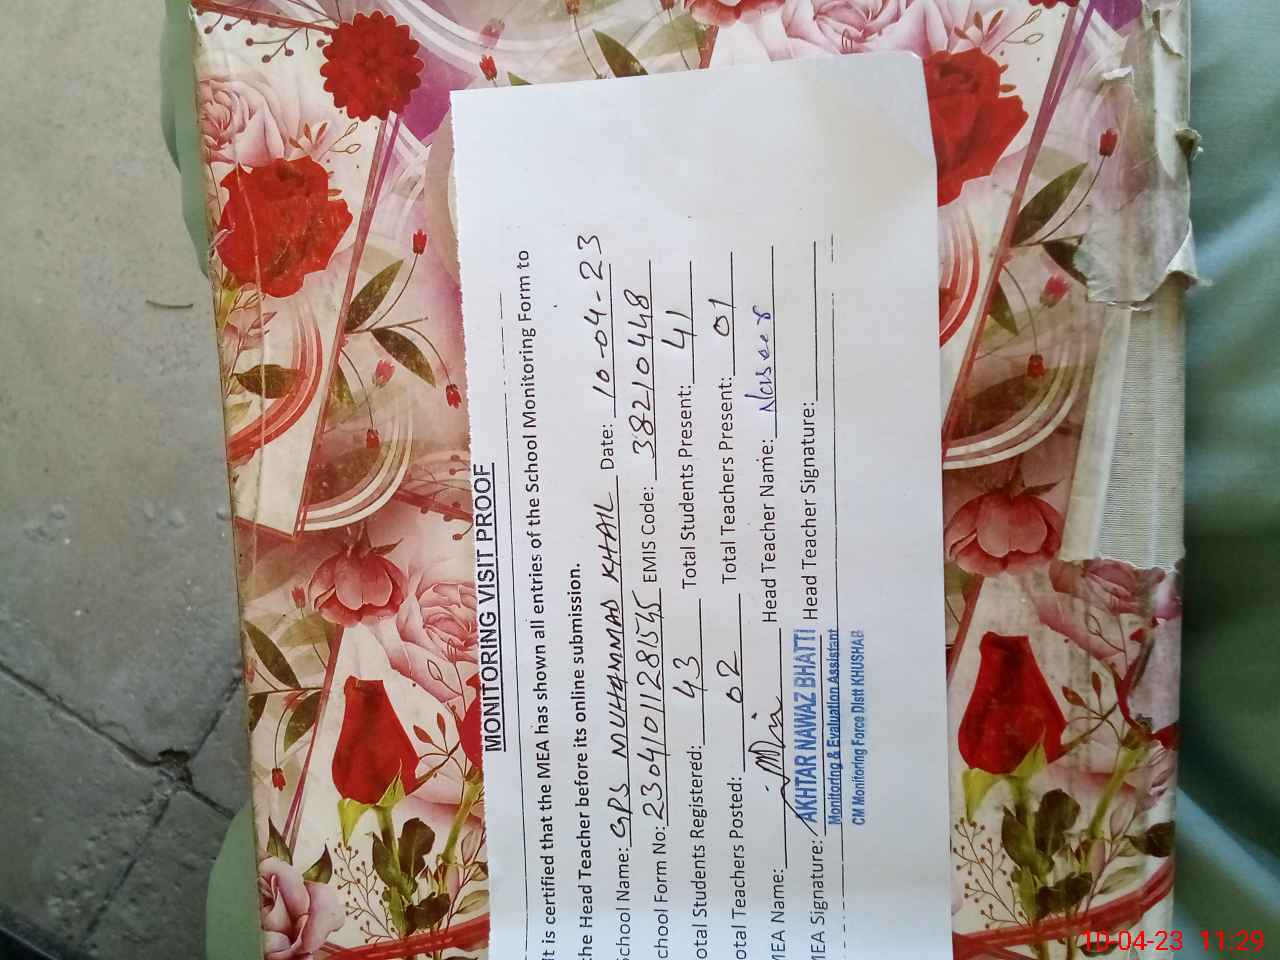 MONITORING VISIT PROOF
It is certified that the MEA has shown all entries of the School Monitoring Form to
the Head Teacher before its online submission.
School Name: GPS MUHAMMAD KHAIL Date: 10-04-23
chool Form No: 23041011281545 EMIS Code: 38210448
otal Students Registered: 43 Total Students Present: 41
otal Teachers Posted: 02 Total Teachers Present: 01
MEA Name: Head Teacher Name: Naseer
MEA Signature: AKHTAR NAWAZ BHATTI Head Teacher Signature:
Monitoring & Evaluation Assistant
CM Monitoring Force Distt KHUSHAB
10-04-23 11:29